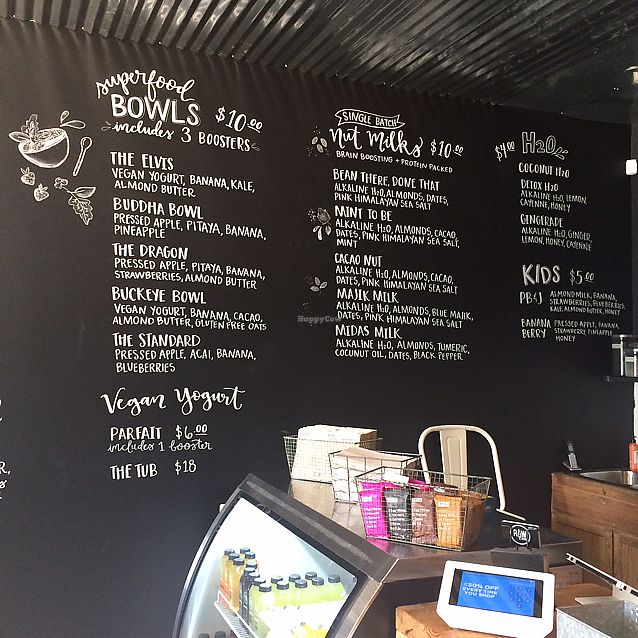 superfood
BOWLS $10.00
includes 3 BOOSTERS
THE ELVIS
VEGAN YOGURT, BANANA, KALE,
ALMOND BUTTER
BUDDHA BOWL
PRESSED APPLE, PITAYA, BANANA,
PINEAPPLE
THE DRAGON
PRESSED APPLE, PITAYA, BANANA,
STRAWBERRIES, ALMOND BUTTER
BUCKEYE BOWL
VEGAN YOGURT, BANANA, CACAO,
ALMOND BUTTER, GLUTEN FREE OATS
THE STANDARD
PRESSED APPLE, ACAI, BANANA,
BLUEBERRIES
Vegan Yogurt
PARFAIT $6.00
includes 1 booster
THE TUB $18
SINGLE BATCH
Nut Milks $10.00
BRAIN BOOSTING + PROTEIN PACKED
BEAN THERE, DONE THAT
ALKALINE H2O, ALMONDS, DATES,
PINK HIMALAYAN SEA SALT
MINT TO BE
ALKALINE H2O, ALMONDS, CACAO,
DATES, PINK HIMALAYAN SEA SALT,
MINT
CACAO NUT
ALKALINE H2O, ALMONDS, CACAO,
DATES, PINK HIMALAYAN SEA SALT
MAJIK MILK
ALKALINE H2O, ALMONDS, BLUE MAJIK,
DATES, PINK HIMALAYAN SEA SALT
MIDAS MILK
ALKALINE H2O, ALMONDS, TUMERIC,
COCONUT OIL, DATES, BLACK PEPPER
$4.00 H2O
COCONUT H2O
DETOX H2O
ALKALINE H2O, LEMON,
CAYENNE, HONEY
GINGERADE
ALKALINE H2O, GINGER,
LEMON, HONEY, CAYENNE
KIDS $5.00
PB&J ALMOND MILK, BANANA,
STRAWBERRIES, BLUEBERRIES,
KALE, ALMOND BUTTER, HONEY
BANANA BERRY PRESSED APPLE, BANANA,
STRAWBERRY, PINEAPPLE,
HONEY
HappyCow
RAW
50% OFF
EVERY TIME
YOU SHOP